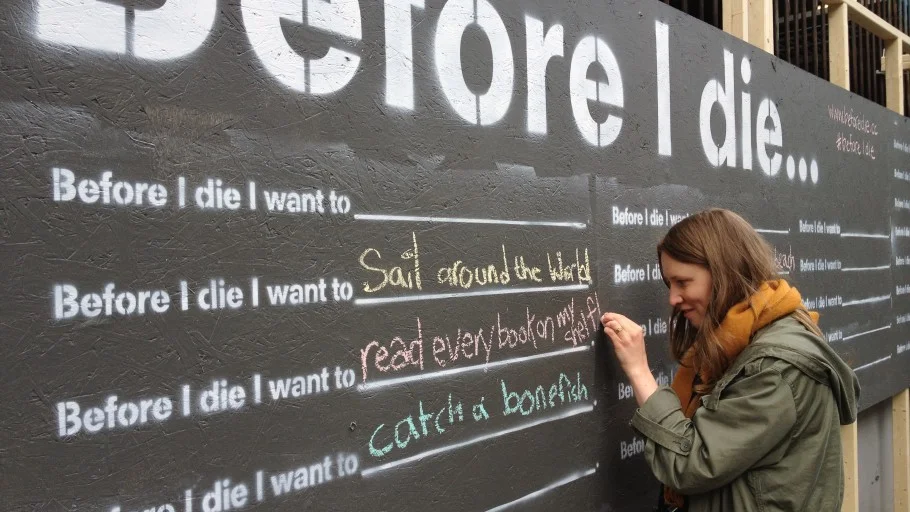 Before I die...
www.beforeidie.cc
#beforeIdie
Before I die I want to
Before I die I want to Sail around the World
Before I die I want to read every book on my shelf!
Before I die I want to catch a bonefish
Before I die I want to
Before I die I want
Before I die
Before I die I want to
Before I die I want to